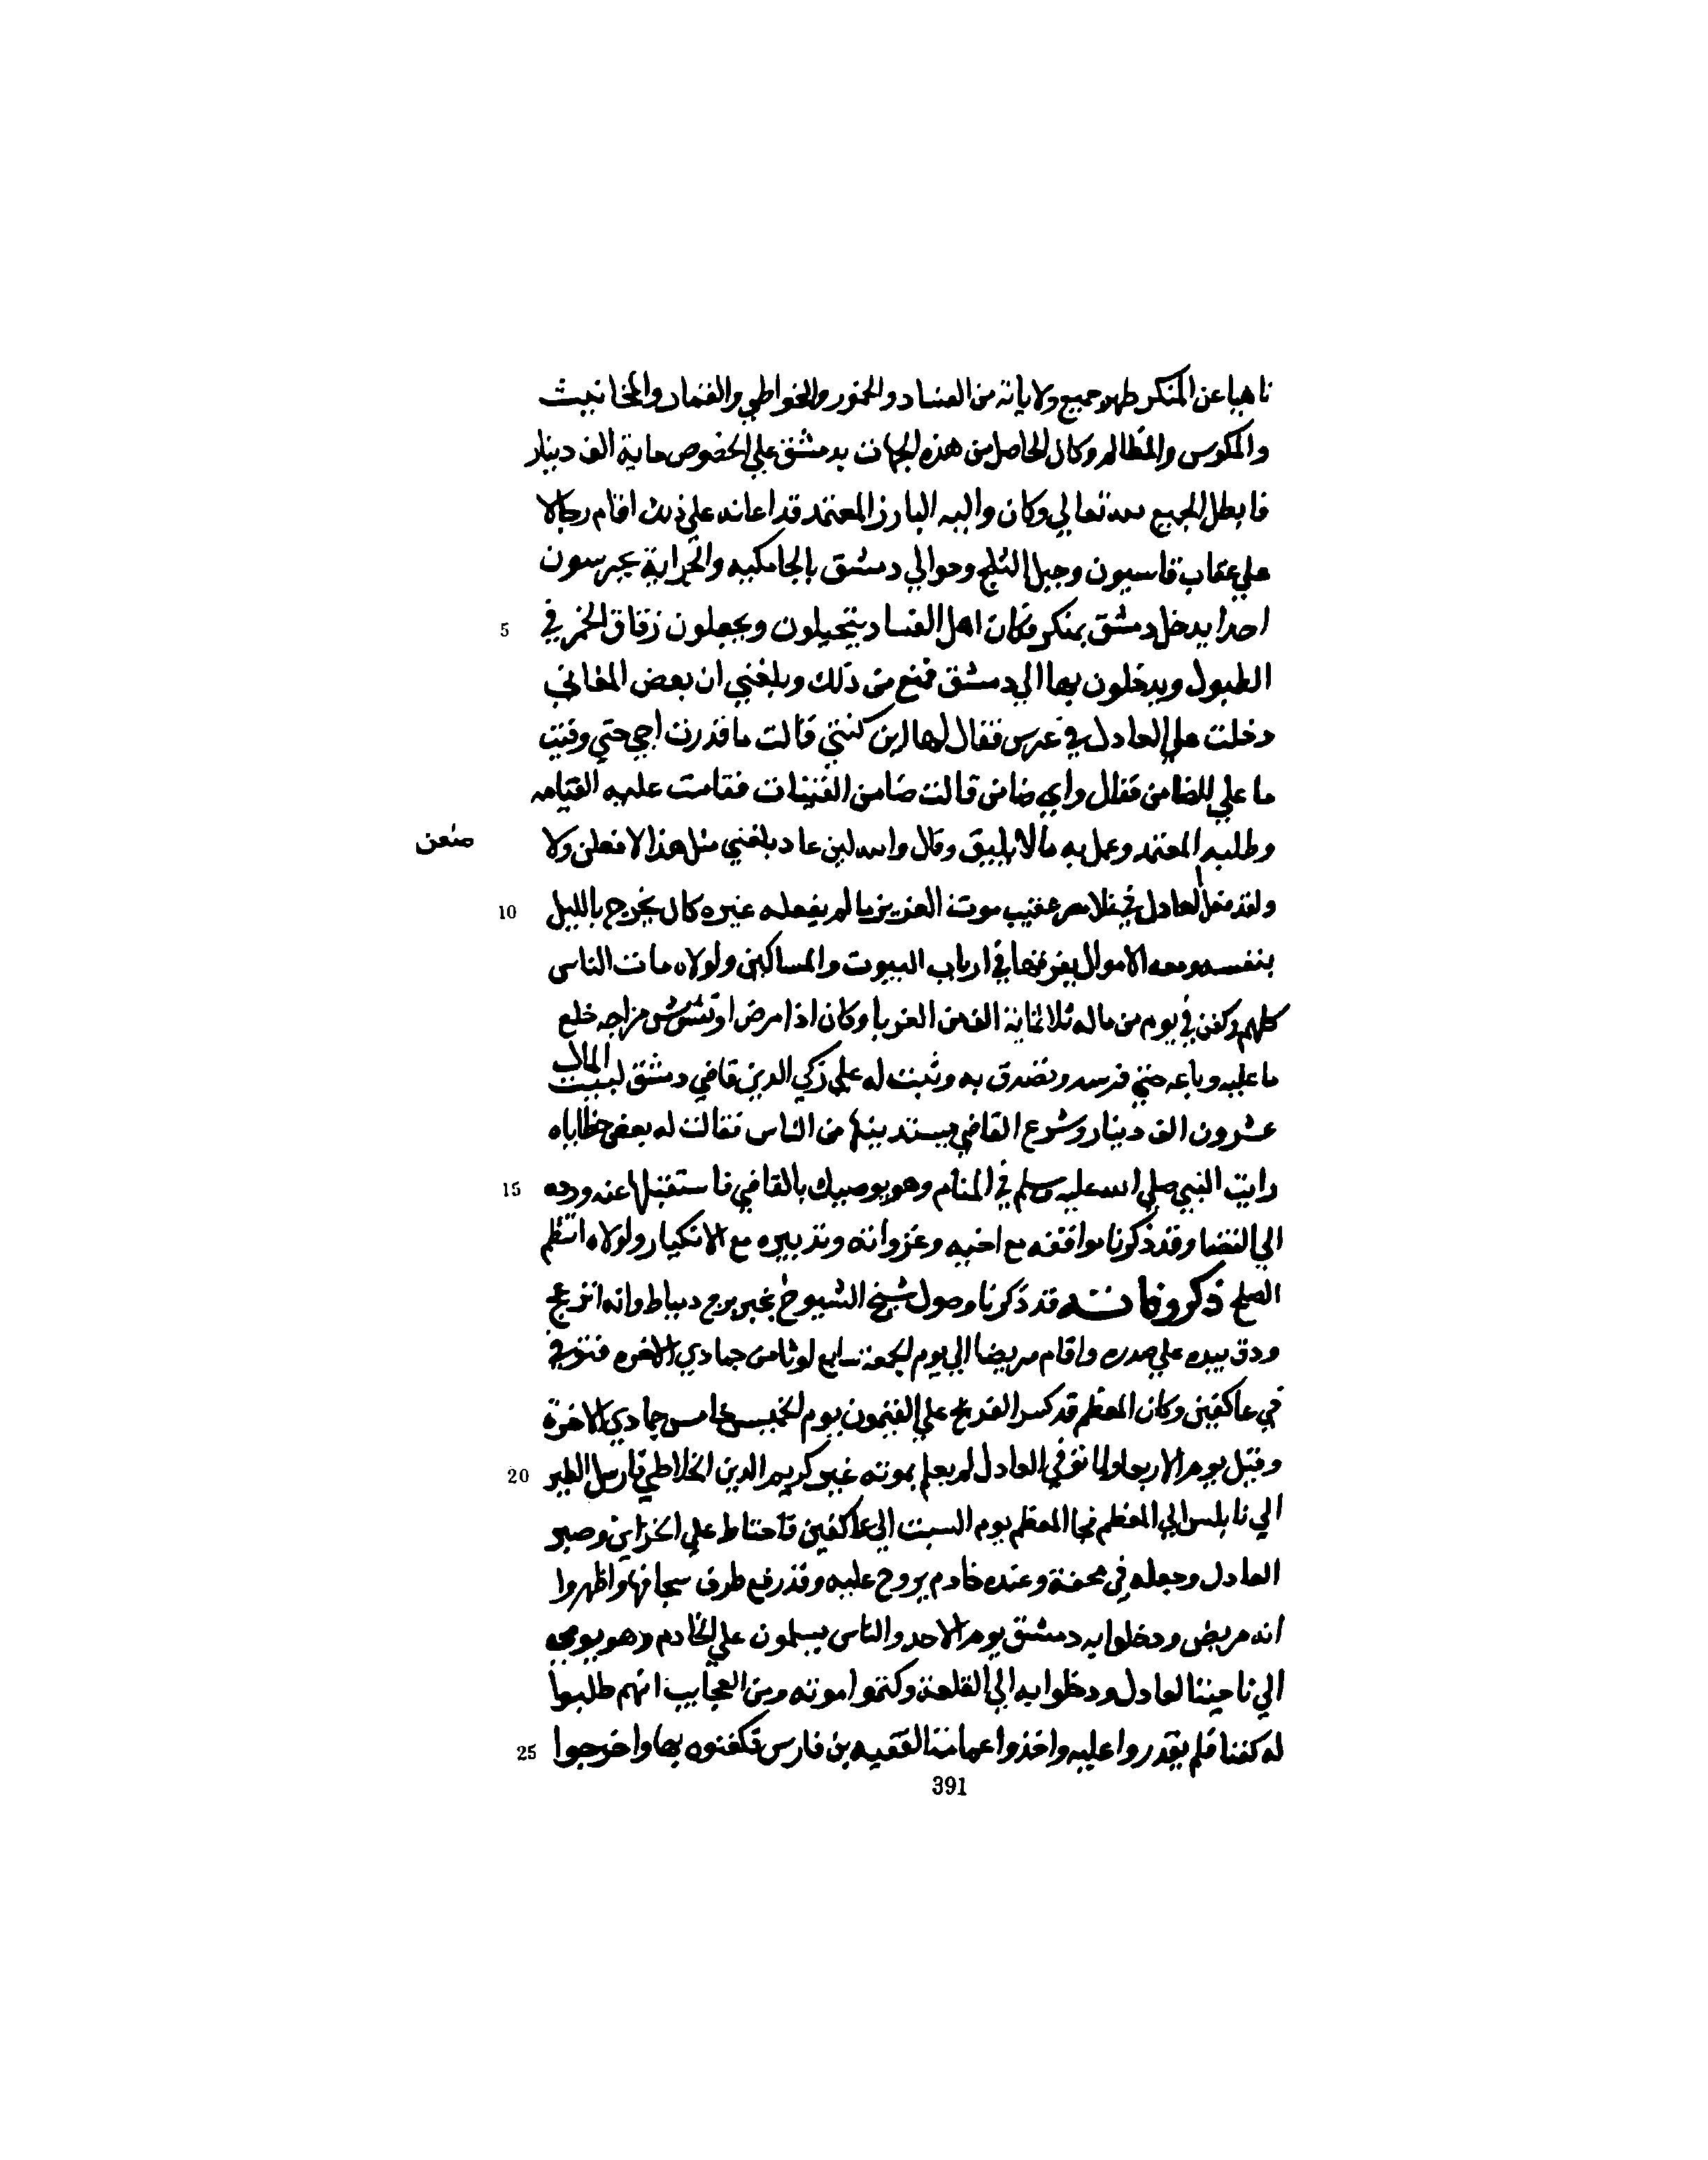 ناهيا عن المنكر طهر جميع ولاياته من الفساد والخمور والخواطي والقمار والمخانيث
والمكوس والمظالم وكان الحاصل من هذه الجهات بدمشق علي الخصوص ماية الف دينار
فابطل الجميع لله تعالي وكان واليه المبارز المعتمد قد اعانه علي ذلك اقام رجالا
علي عقاب قاسيون وجبل الثلج وحوالي دمشق بالجامكيه والجراية يحرسون
احدا يدخل دمشق بمنكر وكان اهل الفساد يتحيلون ويجعلون زقاق الخمر في 5
الطبول ويدخلون بها الي دمشق فمنع من ذلك وبلغني ان بعض المغاني
دخلت علي العادل في عرس فقال لها اين كنتي قالت ما قدرت اجي حتي وفيت
ما علي للضامن فقال واي ضامن قالت ضامن القينات فقامت عليه القيامه
وطلب المعتمد وعمل به ما لا يليق وقال والله لين عاد بلغني مثل هذا لافعلن ولا
صنعن
ولقد فعل العادل في غلا مصر عقيب موت العزيز ما لم يفعله غيره كان يخرج بالليل 10
بنفسه ومعه الاموال يفرقها في ارباب البيوت والمساكين ولولاه مات الناس
كلهم وكفن في يوم من ماله ثلاثماية الف من الغربا وكان اذا مرض او تشوش مزاجه خلع
ما عليه وباعه حتي فرسه وتصدق به وثبت له علي زكي الدين قاضي دمشق لبيت المال
عشرون الف دينار وشرع القاضي يستدينها من الناس فقالت له بعض حظاياه
رايت النبي صلي الله عليه وسلم في المنام وهو يوصيك بالقاضي فاستقبلها عنه ورده 15
الي القضا وقد ذكرنا مواقفه مع اخيه وغزواته وتدبيره مع الانكيار ولولاه انتظم
الصلح ذكر وفاته قد ذكرنا وصول شيخ الشيوخ بخبر برج دمياط وانه انزعج
ودق بيده علي صدره واقام مريضا الي يوم الجمعة سابع او ثامن جمادي الاخره فتوفي
في عالقين وكان المعظم قد كسر الفرنج علي القيمون يوم الخميس خامس جمادي الاخرة
وقيل يوم الاربعا ولما توفي العادل لم يعلم بموته غير كريم الدين الخلاطي فارسل الطير 20
الي نابلس الي المعظم فجا المعظم يوم السبت الي عالقين فاحتاط علي الخزاين وصبر
العادل وجعله في محفة وعنده خادم يروح عليه وقد رفع طرف سجافها واظهروا
انه مريض ودخلوا به دمشق يوم الاحد والناس يسلمون علي الخادم وهو يومي
الي ناحية العادل ودخلوا به الي القلعة وكتموا موته ومن العجايب انهم طلبوا
له كفنا فلم يقدروا عليه واخذوا عمامة الفقيه بن فارس فكفنوه بها واخرجوا 25
391